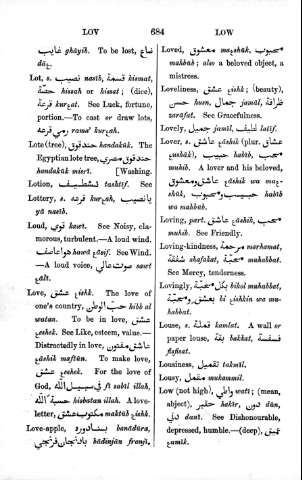 LOV 684 LOW
غايب ghāyib. To be lost, ضاع
dāɛ.
Lot, s. نصيب nasīb, قسمة kismat,
حصّة hissah or hissat; (dice),
قرعة kurɛat. See Luck, fortune,
portion.—To cast or draw lots,
رمى قرعه rama' kurɛah.
Lote (tree), حندقوق handakūk. The
Egyptian lote tree, حندقوق مصري
handakūk misrī. [Washing.
Lotion, تشطيف tashtīf. See
Lottery, s. قرعه kurɛah, يا نصيب
yā nasīb.
Loud, قوي kawī. See Noisy, cla-
morous, turbulent.—A loud wind.
هوا عاصف hawā ɛāsif. See Wind.
—A loud voice, صوت عالي sawt
ɛālī.
Love, عشق ɛishk. The love of
one's country, حبّ الوطن hibb al
watan. To be in love, عشق
ɛeshek. See Like, esteem, value.—
Distractedly in love, عاشق مفتون
ɛāshik maftūn. To make love,
عشق ɛeshek. For the love of
God, في سبيل الله fī sabīl illah,
حسبة الله hisbatan illah. A love-
letter, مكتوب عشق maktūb ɛishk.
Love-apple, بنادوره banādūra,
بادنجان فرنجي bādinjān franjī.
Loved, معشوق maɛshūk, محبوب
mahbūb; also a beloved object, a
mistress.
Loveliness, عشق ɛishk; (beauty),
حسن husn, جمال jamāl, ظرافة
zarāfat. See Gracefulness.
Lovely, جميل jamīl, لطيف latīf.
Lover, عاشق ɛāshik (plur. عشّاق
ɛushāk), حبيب habīb, محبّ
muhib. A lover and his beloved,
عاشق ومعشوق ɛāshik wa maɛ-
shūk, حبيب ومحبوب habīb
wa mahbūb.
Loving, part. عاشق ɛāshik, محبّ
muhib. See Friendly.
Loving-kindness, مرحمة marhamat,
شفقة shafakat, محبّة muhabbat.
See Mercy, tenderness.
Lovingly, بكل محبّة bikol muhabbat,
بعشق ومحبّة bi ɛishkin wa mu-
habbat.
Louse, قملة kamlat. A wall or
paper louse, بقة bakkat, فسفسة
fisfisat.
Lousiness, تقميل takmīl.
Lousy, مقمّل mukammil.
Low (not high), واطي watī; (mean,
abject), حقير hakīr, دون dūn,
دني danī. See Dishonourable,
depressed, humble.—(deep), عميق
ɛamīk.